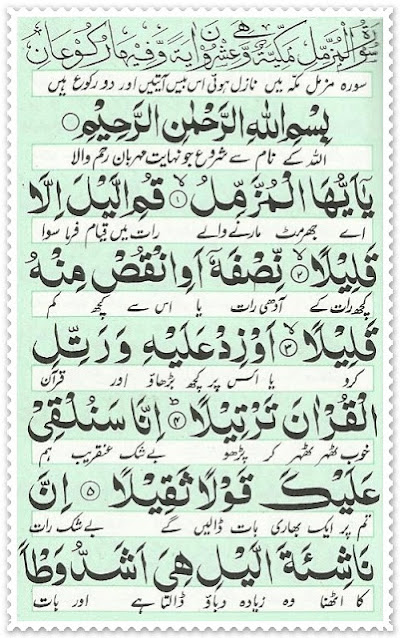 سُوْرَةُ الْمُزَّمِّلِ مَكِّيَّةٌ وَّهِيَ عِشْرُوْنَ اٰيَةً وَّفِيْهَا رُكُوْعَانِ
سورہ مزمل مکہ میں نازل ہوئی اس میں بیس آیتیں اور دو رکوع ہیں
بِسْمِ اللّٰهِ الرَّحْمٰنِ الرَّحِيْمِ
اللہ کے نام سے شروع جو نہایت مہربان رحم والا
يٰۤاَيُّهَا الْمُزَّمِّلُ ۙ﴿۱﴾ قُمِ الَّيْلَ اِلَّا
اے جھرمٹ مارنے والے رات میں قیام فرما سوا
قَلِيْلًا ۙ﴿۲﴾ نِّصْفَهٗۤ اَوِ انْقُصْ مِنْهُ
کچھ رات کے آدھی رات یا اس سے کچھ کم
قَلِيْلًا ۙ﴿۳﴾ اَوْ زِدْ عَلَيْهِ وَ رَتِّلِ
کرو یا اس پر کچھ بڑھاؤ اور قرآن
الْقُرْاٰنَ تَرْتِيْلًا ؕ﴿۴﴾ اِنَّا سَنُلْقِيْ
خوب ٹھہر ٹھہر کر پڑھو بےشک عنقریب ہم
عَلَيْكَ قَوْلًا ثَقِيْلًا ﴿۵﴾ اِنَّ
تم پر ایک بھاری بات ڈالیں گے بےشک رات
نَاشِئَةَ الَّيْلِ هِيَ اَشَدُّ وَطْاً
کا اٹھنا وہ زیادہ دباؤ ڈالتا ہے اور بات